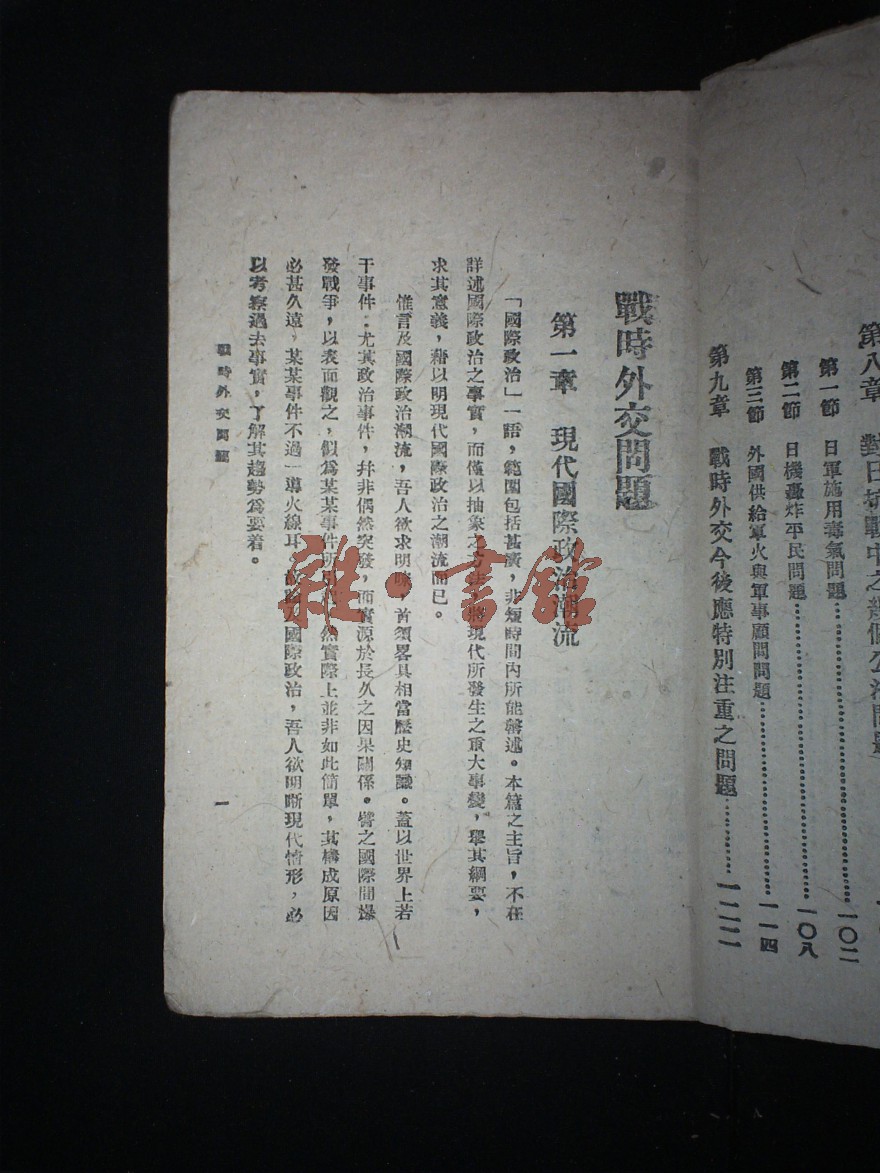 第八章 對日抗戰中之幾個公法問題
第一節 日軍施用毒氣問題⋯⋯⋯⋯一〇二
第二節 日機轟炸平民問題⋯⋯⋯⋯一〇八
第三節 外國供給軍火與軍事顧問問題⋯⋯⋯⋯一一四
第九章 戰時外交今後應特別注重之問題⋯⋯⋯⋯一二二
戰時外交問題
第一章 現代國際政治潮流
「國際政治」一語,範圍包括甚廣,非短時間內所能縷述。本篇之主旨,不在
詳述國際政治之事實,而僅以抽象之方法,將現代所發生之重大事變,舉其綱要,
求其意義,藉以明現代國際政治之潮流而已。
惟言及國際政治潮流,吾人欲求明晰,首須畧具相當歷史知識。蓋以世界上若
干事件:尤其政治事件,幷非偶然突發,而實源於長久之因果關係。譬之國際間爆
發戰爭,以表面觀之,似爲某某事件所 然實際上並非如此簡單,其構成原因
必甚久遠,某某事件不過一導火線耳 及國際政治,吾人欲明晰現代情形,必
以考察過去事實,了解其趨勢爲要着。
戰時外交問題
一
雜·書館